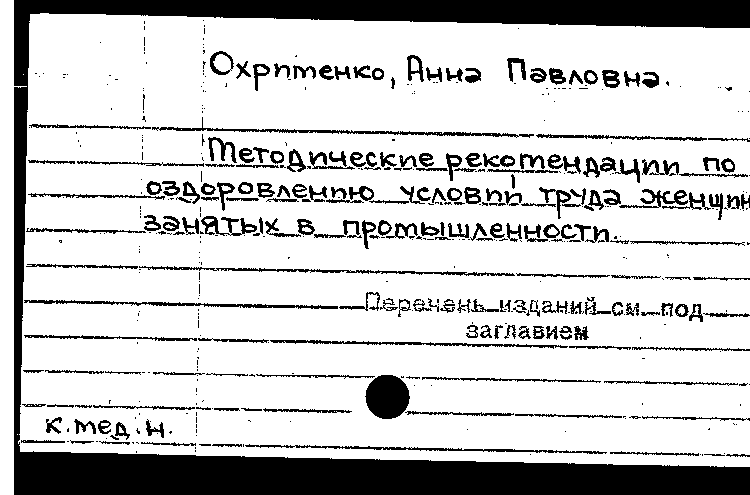 Охритенко, Анна Павловна.
Методические рекомендации по
оздоровлению условий труда женщин
занятых в промышленности.
Перечень изданий см. под
заглавием
к.мед.н.